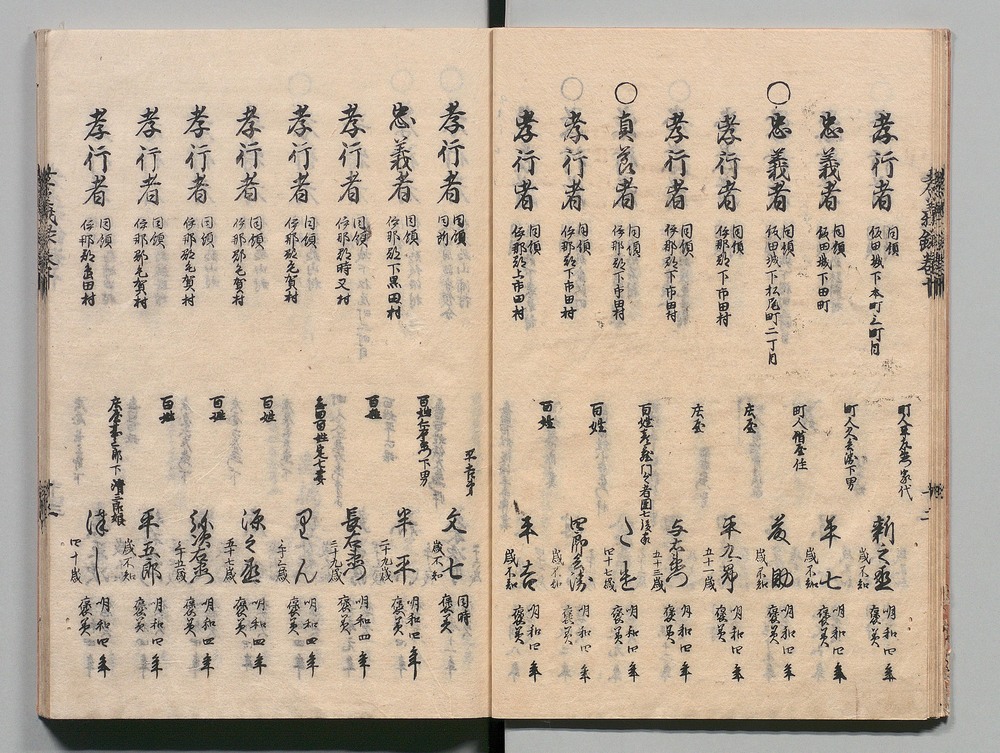 孝行者 同領 飯田城下本町三町目 町人 家代 新之丞 歳不知 明和四年 褒美
忠義者 同領 飯田城下田町 町人 下男 年七 歳不知 明和四年 褒美
○忠義者 同領 飯田城下松尾町二丁目 町人借屋住 茂助 歳不知 明和四年 褒美
孝行者 同領 伊那郡下市田村 庄屋 平九郎 五十一歳 明和四年 褒美
孝行者 同領 伊那郡下市田村 庄屋 与左衛門 五十三歳 明和四年 褒美
○貞節者 同領 伊那郡下市田村 百姓 四十七歳 明和四年 褒美
孝行者 同領 伊那郡下市田村 百姓 四郎兵衛 歳不知 明和四年 褒美
孝行者 同領 伊那郡上市田村 百姓 平吉 歳不知 明和四年 褒美
孝行者 同領 同所 文七 歳不知 同時 褒美
忠義者 同領 伊那郡下黒田村 百姓 下男 半平 二十九歳 明和四年 褒美
孝行者 同領 伊那郡時又村 百姓 長右衛門 三十九歳 明和四年 褒美
孝行者 同領 伊那郡毛賀村 りん 明和四年 褒美
孝行者 同領 伊那郡毛賀村 百姓 源之丞 五十七歳 明和四年 褒美
孝行者 同領 伊那郡毛賀村 百姓 弥次右衛門 明和四年 褒美
孝行者 同領 伊那郡毛賀村 百姓 平五郎 歳不知 明和四年 褒美
孝行者 同領 伊那郡嶋田村 庄屋 下 清三郎娘 四十歳 明和四年 褒美